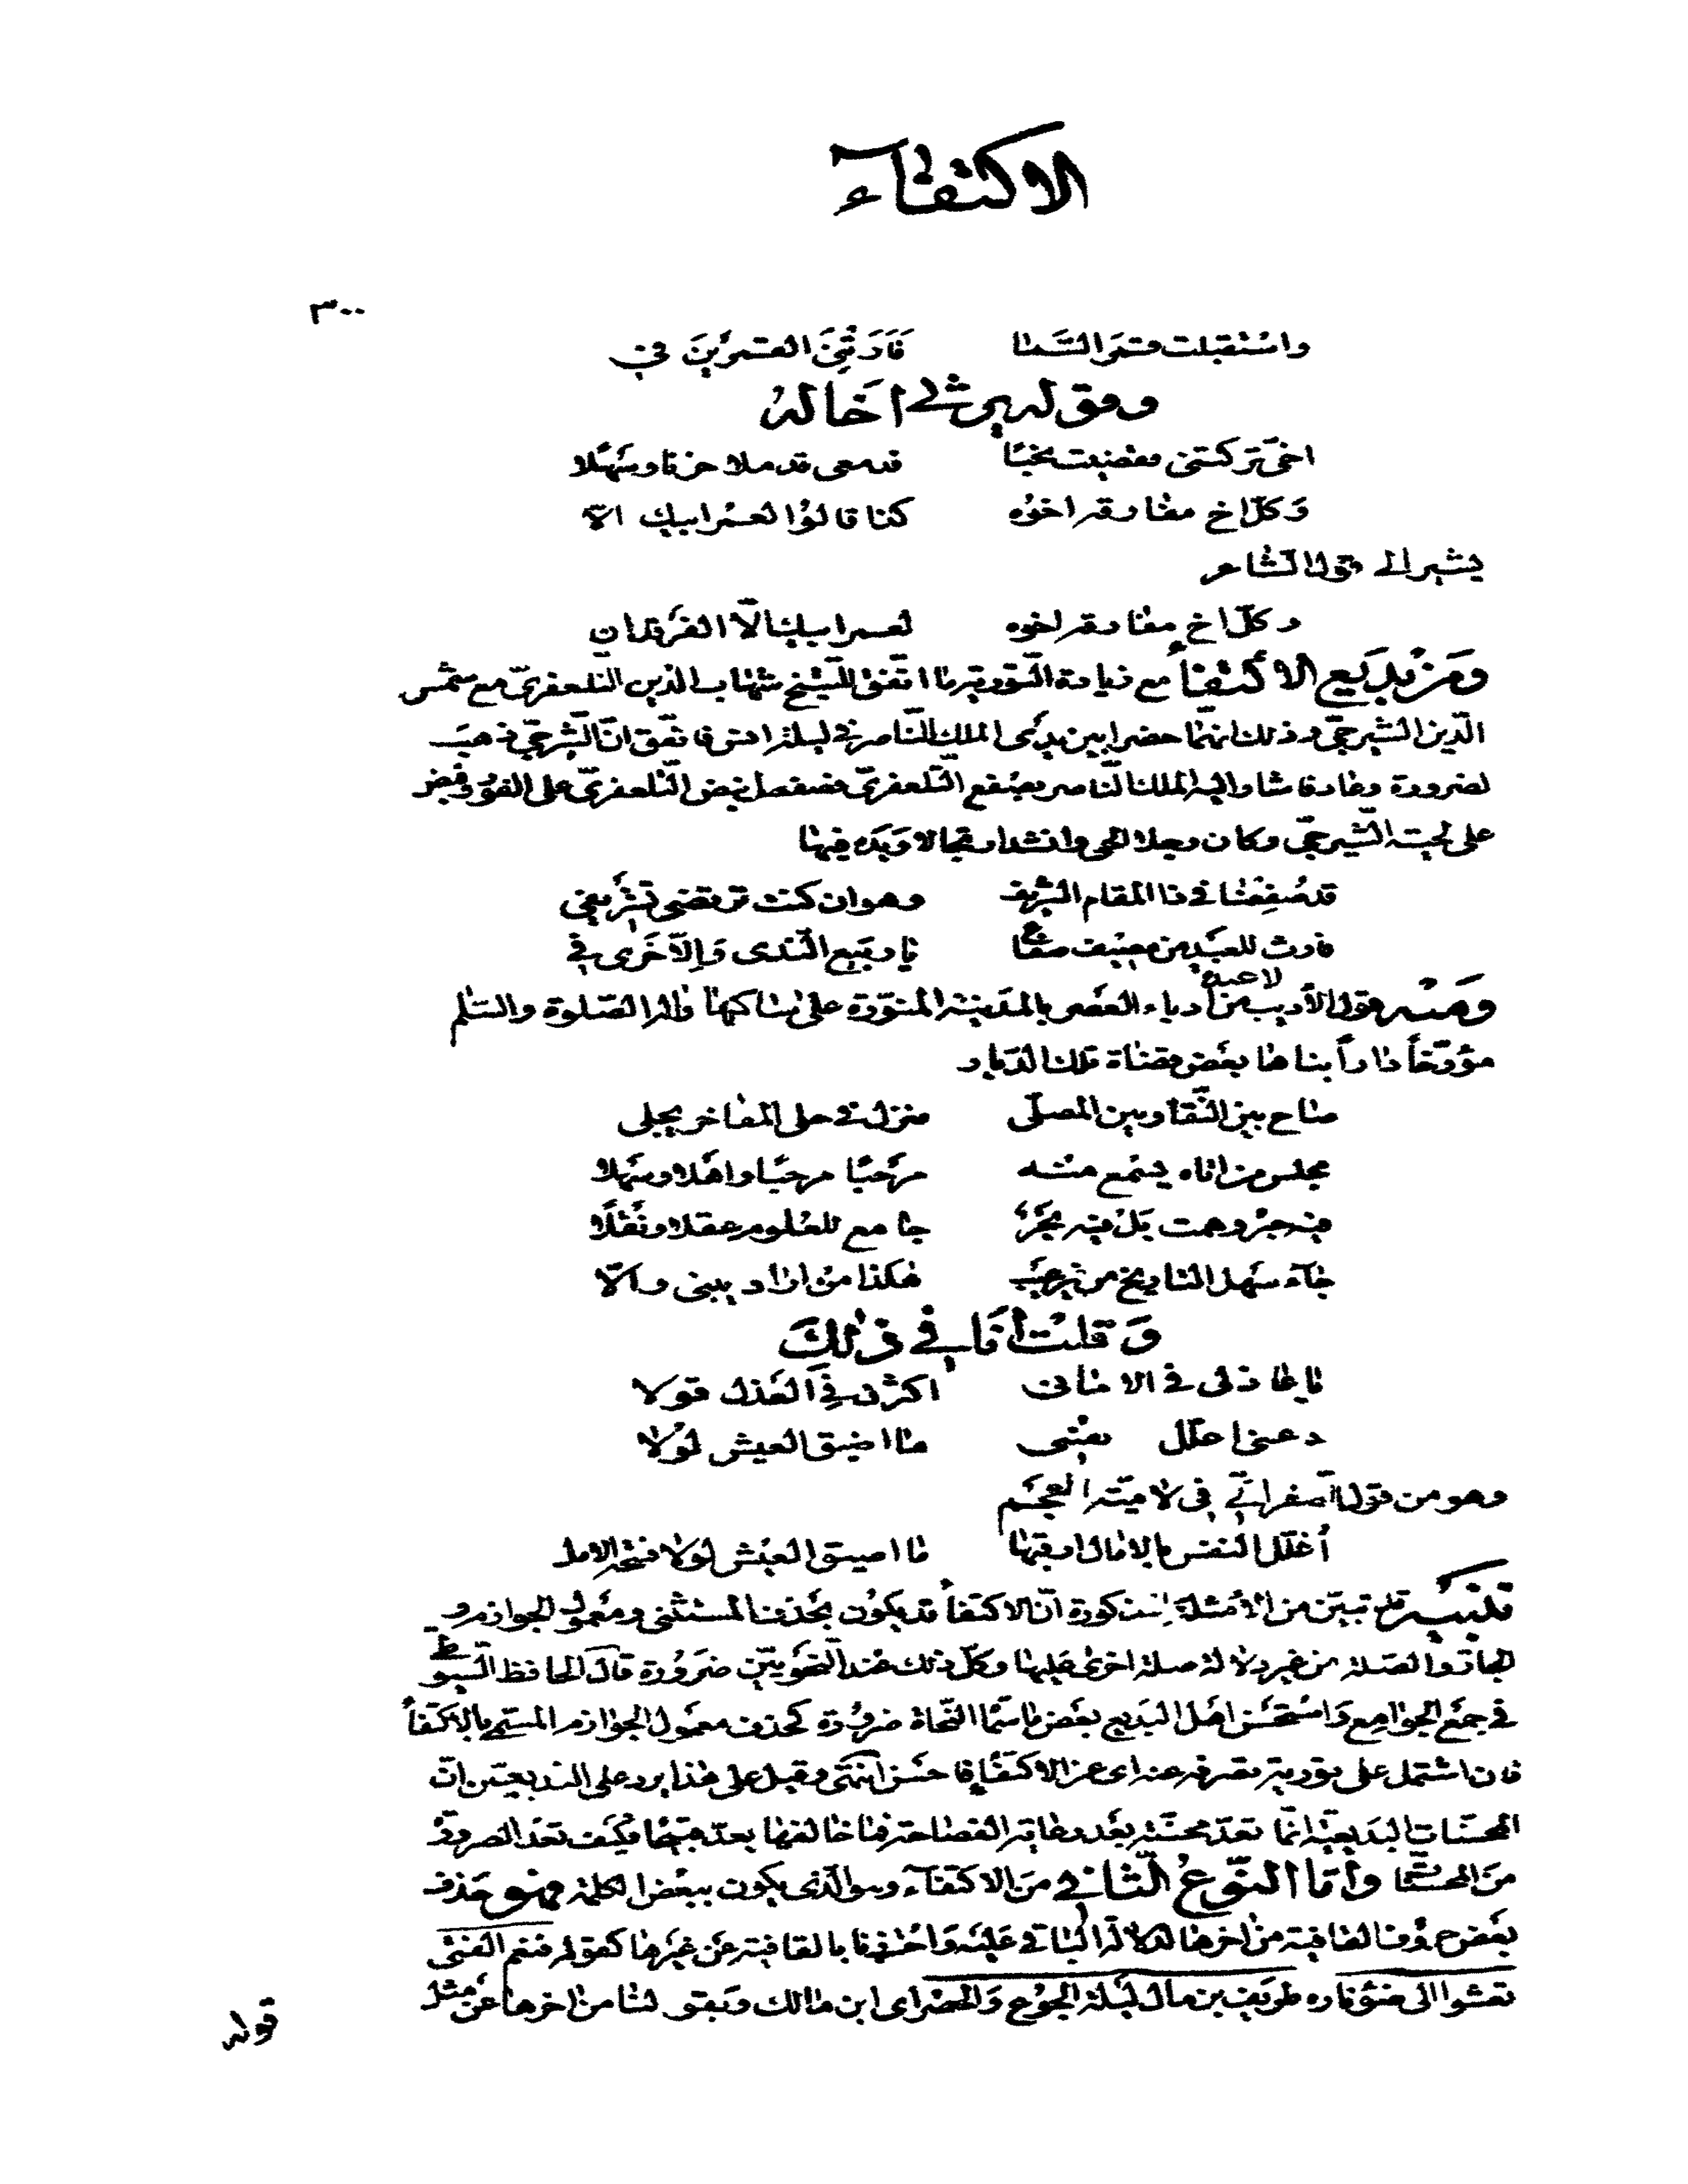 الاكتفآء
٣٠٠
واستقبلت قمر السّما فَأَرَتْنِيَ القمرَينَ في
وقوله يرثى اخًا له
اخى تركتنى وقضيت نحبًا فدمعى قد ملا حزنا وسَهْلا
وَكلّ اخ مفارقه اخوُه كذا قالوُا لعمْر ابيك الّا
يشير الى قول الشاعر
وكلّ اخٍ مفارقه اخوه لعمر ابيك الّا الفرَقدان
ومَنْ بدَيع الأكتفاء مع زيادة التورية ما اتفق للشيخ شهاب الدّين التلعفرىّ مع شمس
الّدين الشيرجىّ وذلك انهما حضرا بين يدَى الملك الناصر في ليلة انس فاتفق انّ الشيرجىّ ذهبَ
لضرورة وعاد فاشار اليه الملك الناصر بصَفع التلعفرىّ فصفعه فنهض التلعفرىّ على الفوْر وقبض
على لحية الشيرجىّ وكان رجلا الحى وانشد ارتجالا وَيَده فيها
قد صُفِعْنا في ذا المقام الشريف وهو ان كنت ترتضى تشْريفي
فارث للعَبْد من مصيف صفاع يا ربَيع النّدى وَالّا خَرَى في
وَمنْه قول الأديب من أدباء العَصر بالمدَينة المنوّرة على ساكنها وآله الصّلوة والسّلم
مؤرّخاً داراً بناها بعَض قضاة تلك الدّيار
صاح بيَن النّقا وبين المصلّى منزل في حلى المفاخر يجلى
مجلس من اتاه يسْمع منه مرْحَبًا مرحبًا واهَلا وسَهلا
فيه حبْر وهمت بَلْ فيه بحْرٌ جامع للعُلوم عقلا ونَقْلًا
جاء سَهل التاريخ من غير عيَب هٰكذا منْ اراد يبنى والّا
وَقلتْ أنَا في ذٰلكَ
يا عاذلى في الامانى اكثرت فِي العَذل قولا
دعنى اعلّل نفْسى ما اضيق العيش لوْلا
وهو من قول الصغرائى في لاميّة العجَم
أُعلّل النفس بالامال ارقبها ما اضيق العيْش لولا فسْحة الامل
تنبيه قد تبيّن من الأمثلة المذكورة انّ الاكتفاَء قد يكوُن بحَذف المستثنى ومعَمول الجوازم و
الجارّ والصّلة من غير دلالة صلة اخرى عليها وكلّ ذلك عند النحَوييّن ضرَوُرة قال الحافظ السّيوطى
في جمْع الجوامع وَاستْحسَن اهل البدَيع بعَض ما سمّاه النّحاة ضروُرة كحذف معموُل الجوازم المسمّى بالاكتفاَء
فان اشتمل على تورية تصرفه عنه اى عن الاكتفَاء فاحسَن انتهى وقيل على هٰذا يرد على البديعيّن انّ
المحسّنات البَديعيّة انّما تعَدّ محسّنة بعَد رعاية الفصاحة فما خالفها يعدّ قبيحًا فكيَف تعَد الضروُرة
منَ المحسّنات وأمّا النّوعُ الثّانى منَ الاكتفاَء وهو الّذى يكون ببعَض الكلمة فهو حَذف
بعَض حروُف القافية منْ اخرها لدلالة البَاقى عليْه وَاحْترزنا بالقافية عنْ غيرها كقوله فنعم الفتى
تعشوا الى ضوْء ناره طريَف بن مال ليْلة الجوُع وَالخصَر اى ابن مالك وَبقولنا من اخرها عنْ مثل
قوله